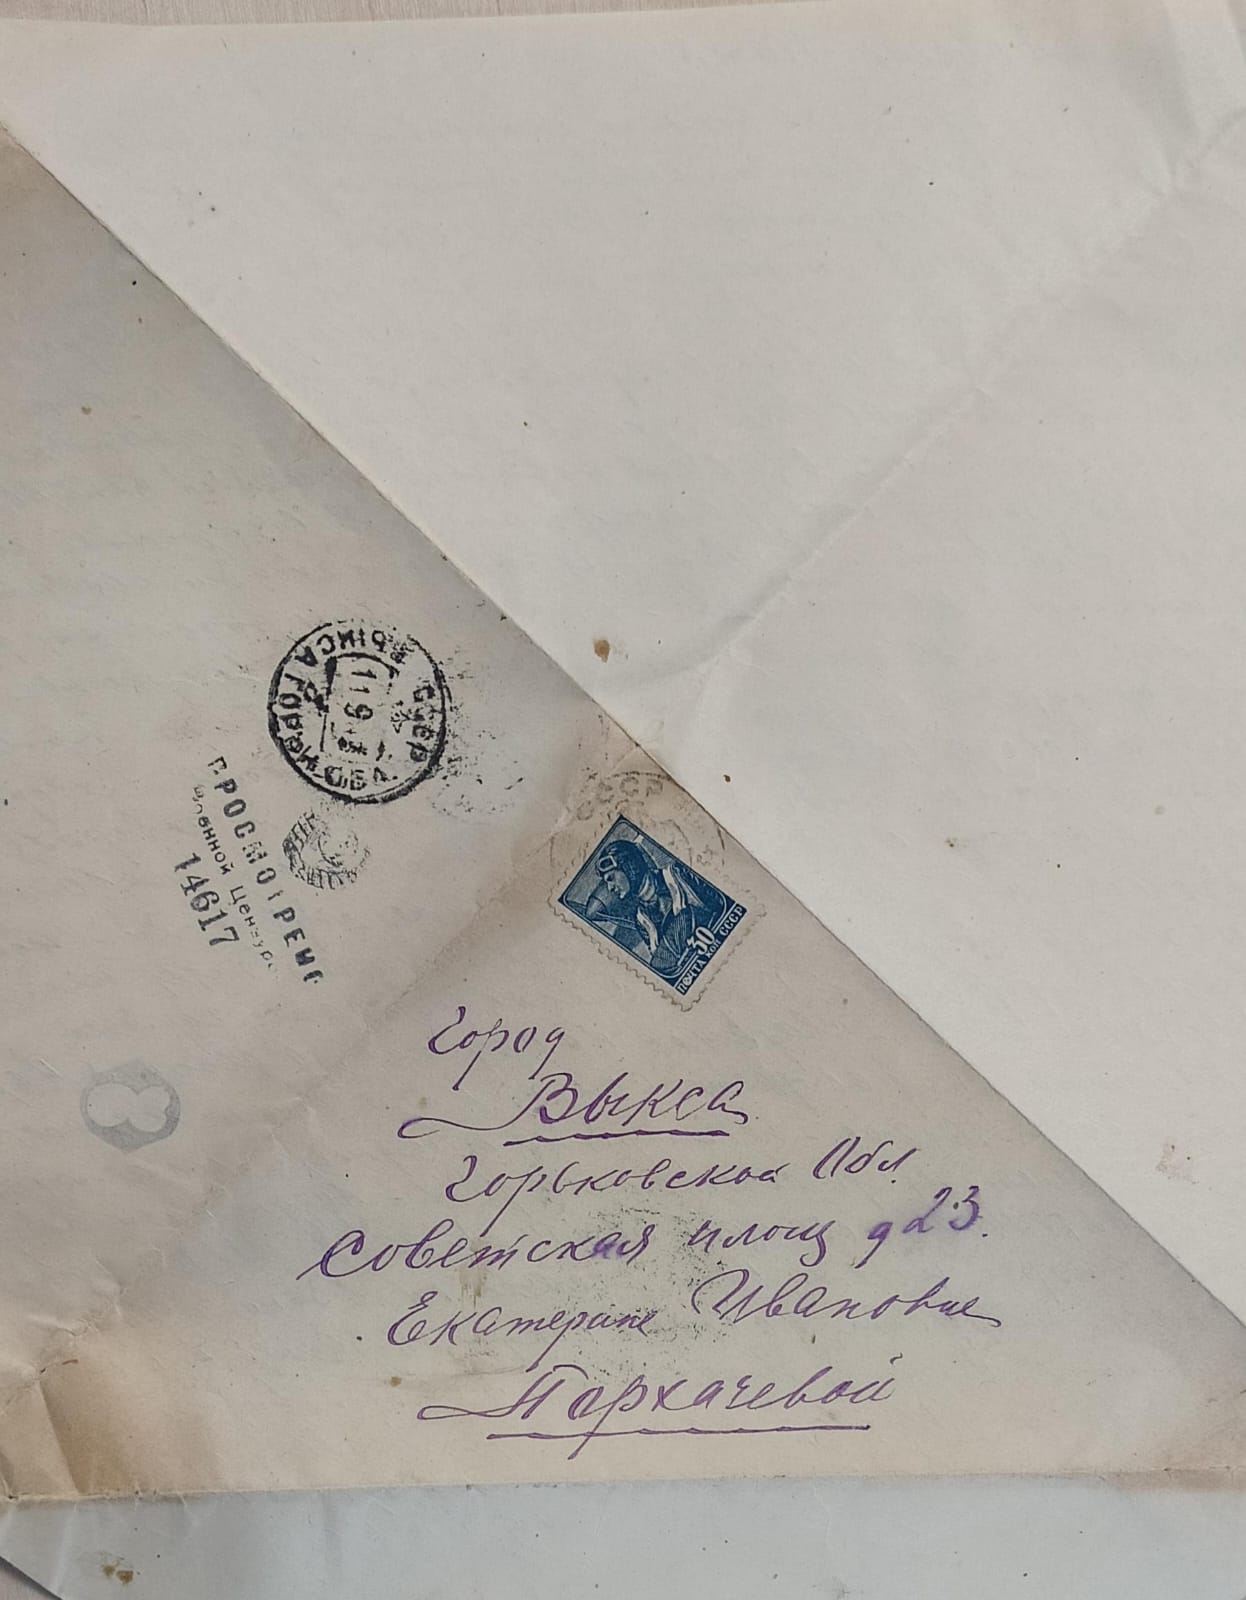 СССР
ВЫКСА ГОРЬК. ОБЛ.
11 9
ПРОСМОТРЕНО
Военной Цензурой
14617
СССР
30
ПОЧТА КОП СССР
Город
Выкса
Горьковской Обл.
Советская площ д 23.
Екатерине Ивановне
Пархачевой